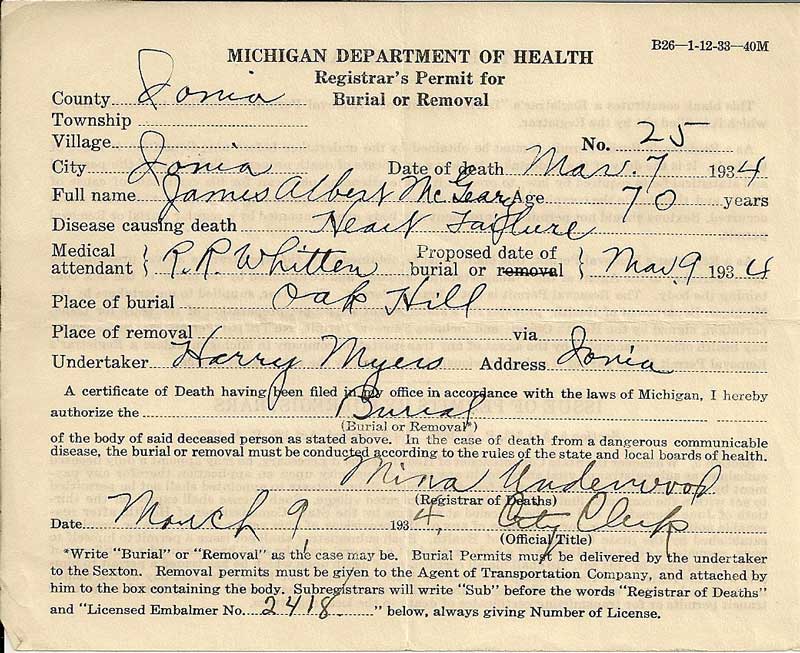 B26—1-12-33—40M
MICHIGAN DEPARTMENT OF HEALTH
Registrar's Permit for
County Ionia Burial or Removal
Township
Village No. 25
City Ionia Date of death Mar. 7 1934
Full name James Albert McGeary Age 70 years
Disease causing death Heart Failure
Medical attendant } R. R. Whitten Proposed date of burial or removal } Mar. 9 1934
Place of burial Oak Hill
Place of removal via
Undertaker Harry Myers Address Ionia
A certificate of Death having been filed in my office in accordance with the laws of Michigan, I hereby
authorize the Burial
(Burial or Removal*)
of the body of said deceased person as stated above. In the case of death from a dangerous communicable
disease, the burial or removal must be conducted according to the rules of the state and local boards of health.
Mina Underwood
(Registrar of Deaths)
Date March 9, 1934, City Clerk
(Official Title)
*Write "Burial" or "Removal" as the case may be. Burial Permits must be delivered by the undertaker
to the Sexton. Removal permits must be given to the Agent of Transportation Company, and attached by
him to the box containing the body. Subregistrars will write "Sub" before the words "Registrar of Deaths"
and "Licensed Embalmer No. 2418 " below, always giving Number of License.